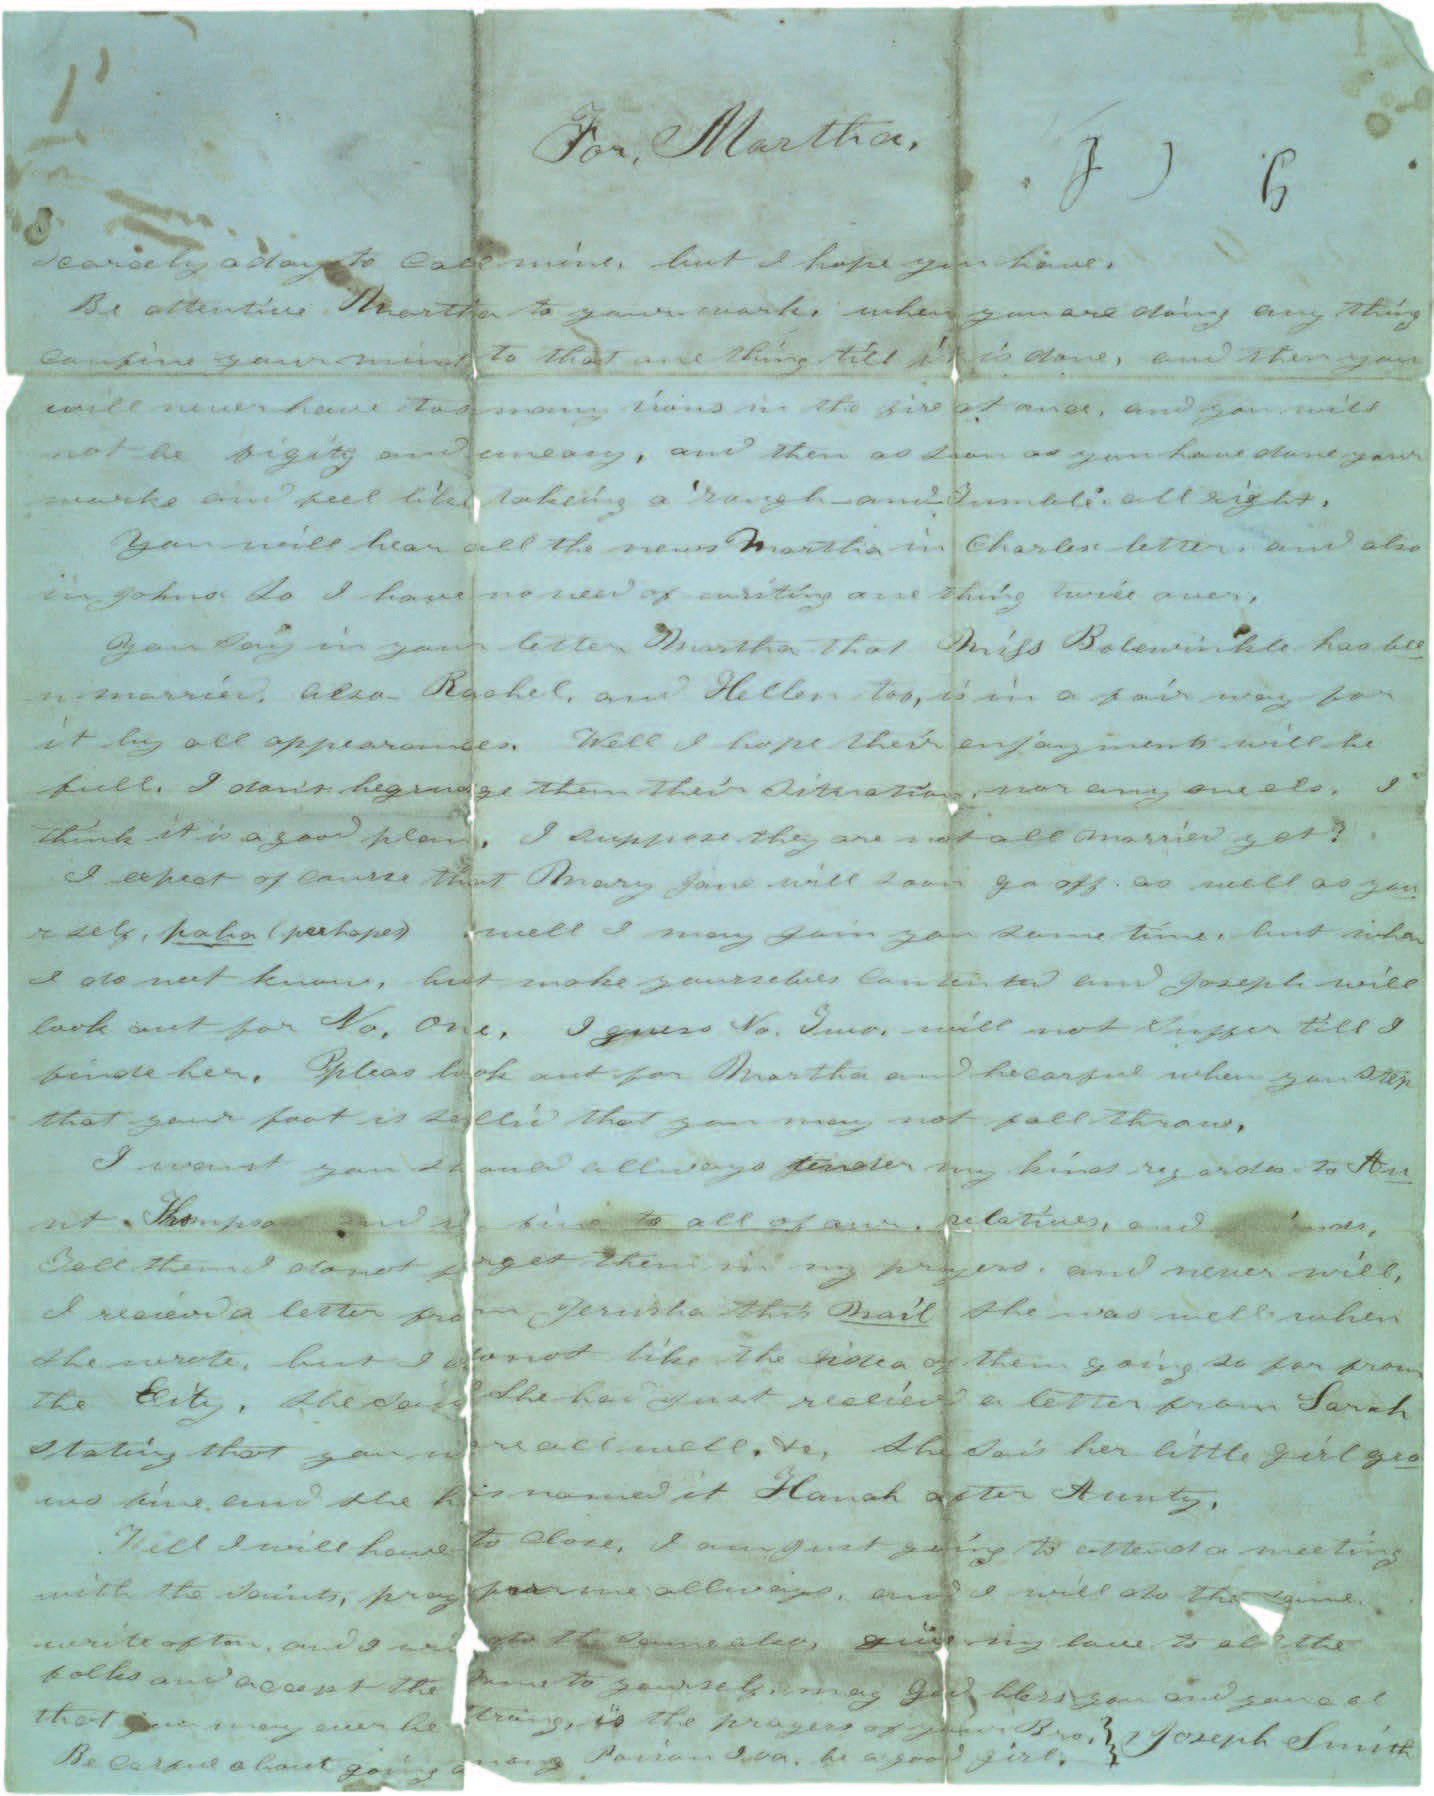 For, Martha.
scarcely a day to call mine, but I hope you have.
Be attentive Martha to your work, when you are doing any thing
confine your mind to that one thing till it is done, and then you
will never have too many irons in the fire at once, and you will
not be figity and uneasy, and then as soon as you have done your
works and feel like takeing a rough-and-Tumble all right.
You will hear all the news Martha in Charles letter, and also
in Johns So I have no need of writing one thing twice over,
You say in your letter Martha that Miss Bolewinkle has bee
n married, also Rachel, and Hellen too, is in a fair way for
it by all appearances. Well I hope their enjoyments will be
full. I dont begrudge them their Situation, nor any one els. I
think it is a good plan, I suppose they are not all married yet?
I expect of course that Mary Jane will soon go off as well as you
rself, paha (perhapes) well I may join you some time, but when
I do not know, but make yourselves contented and Joseph will
look out for No, One, I guess No. Two, will not Suffer till I
finde her, Pleas look out for Martha and be carful when you step
that your foot is sollid that you may not fall throw,
I want you should allways tender my kind regardes to Au
nt. Thompson and to all of our, relatives, and
Tell them I do not forget them in my prayers, and never will,
I recieved a letter from Jerusha this Mail She was well when
She wrote, but I do not like the idea of them going so far from
the City, She said She had just recieved a letter from Sarah
Stating that you were all well, &c, She Sais her little girl gro
ws fine and she has named it Hanah after Aunty,
Well I will have to close, I am just going to attend a meeting
with the Saints, pray for me allways, and I will do the same
write often, and I will do the same also, give my love to all the
folks and accept the same to yourself, may God bless you and your al
that you may ever be Strong, is the prayers of your Bro, Joseph Smith
Be carful about going among be a good girl.